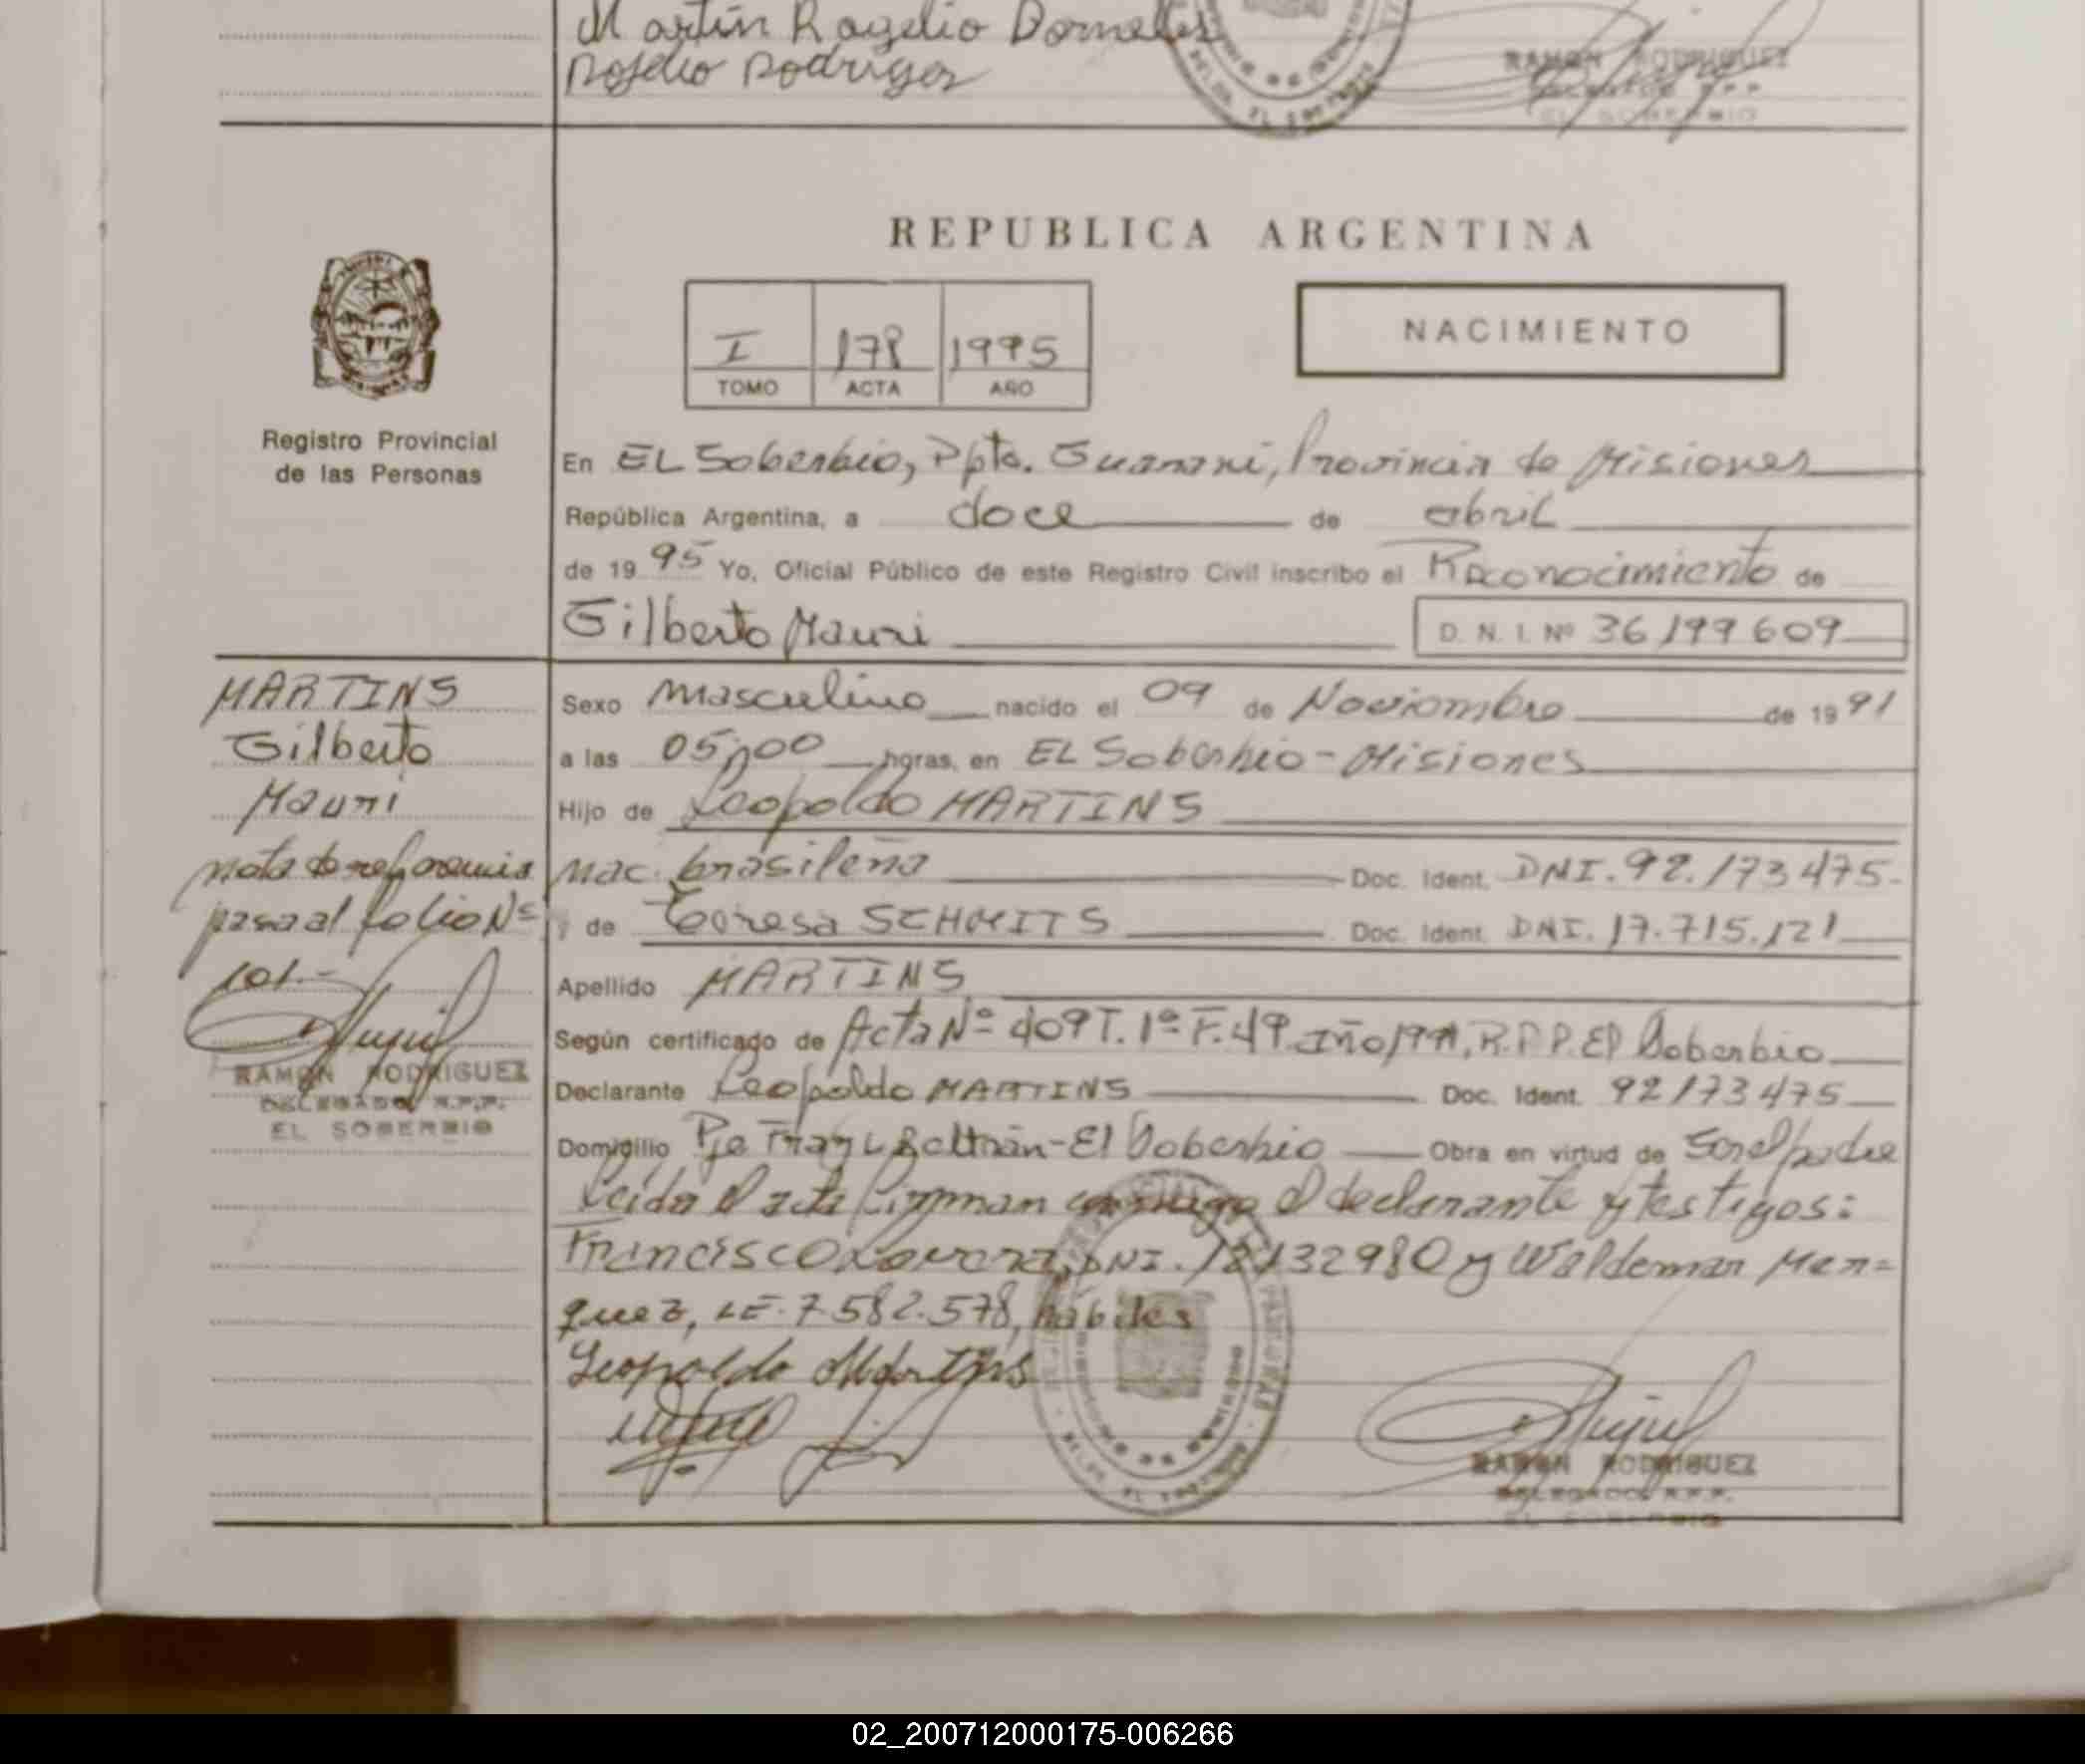 Martín Rogelio Dornelles
Rogelio Rodriguez
RAMON RODRIGUEZ
DELEGADO R.P.P.
EL SOBERBIO
REPUBLICA ARGENTINA
I 178 1995
TOMO ACTA AÑO
NACIMIENTO
Registro Provincial
de las Personas
En EL Soberbio, Dpto. Guarani, Provincia de Misiones
República Argentina, a doce de abril
de 1995 Yo, Oficial Público de este Registro Civil inscribo el Reconocimiento de
Gilberto Mauri D. N. I. Nº 36199609
MARTINS
Gilberto
Mauri
nota de referencia
pasa al folio Nº
101.-
RAMON RODRIGUEZ
DELEGADO R.P.P.
EL SOBERBIO
Sexo Masculino nacido el 09 de Noviembre de 1991
a las 05,00 horas, en EL Soberbio - Misiones
Hijo de Leopoldo MARTINS
Nac. brasileña Doc. Ident. DNI. 92.173475-
y de Teresa SCHMITS Doc. Ident. DNI. 17.715.121
Apellido MARTINS
Según certificado de Acta Nº 409 T. 1º F. 49 Año 1991, R.P.P. El Soberbio
Declarante Leopoldo MARTINS Doc. Ident. 92173475
Domicilio Pje Fray L Beltrán - El Soberbio Obra en virtud de Ser el padre
Leida el acta firman conmigo el declarante y testigos:
Francisco DNI. 12132980 y Waldemar Mar=
quez, LE. 7.582.578, hábiles
Leopoldo Martins
RAMON RODRIGUEZ
DELEGADO R.P.P.
EL SOBERBIO
02_200712000175-006266